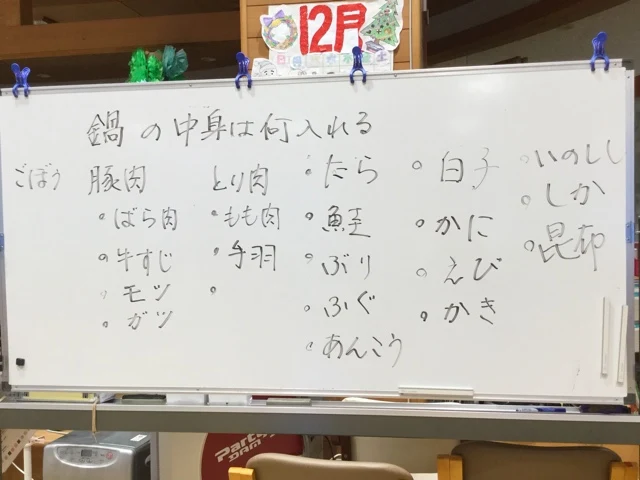 12月
日 月 火 水 木 金 土
鍋の中身は何入れる
ごぼう
豚肉
・ばら肉
・牛すじ
・モツ
・ガツ
とり肉
・もも肉
・手羽
・
・たら
・鮭
・ぶり
・ふぐ
・あんこう
・白子
・かに
・えび
・かき
・いのしし
・しか
・昆布
DAM